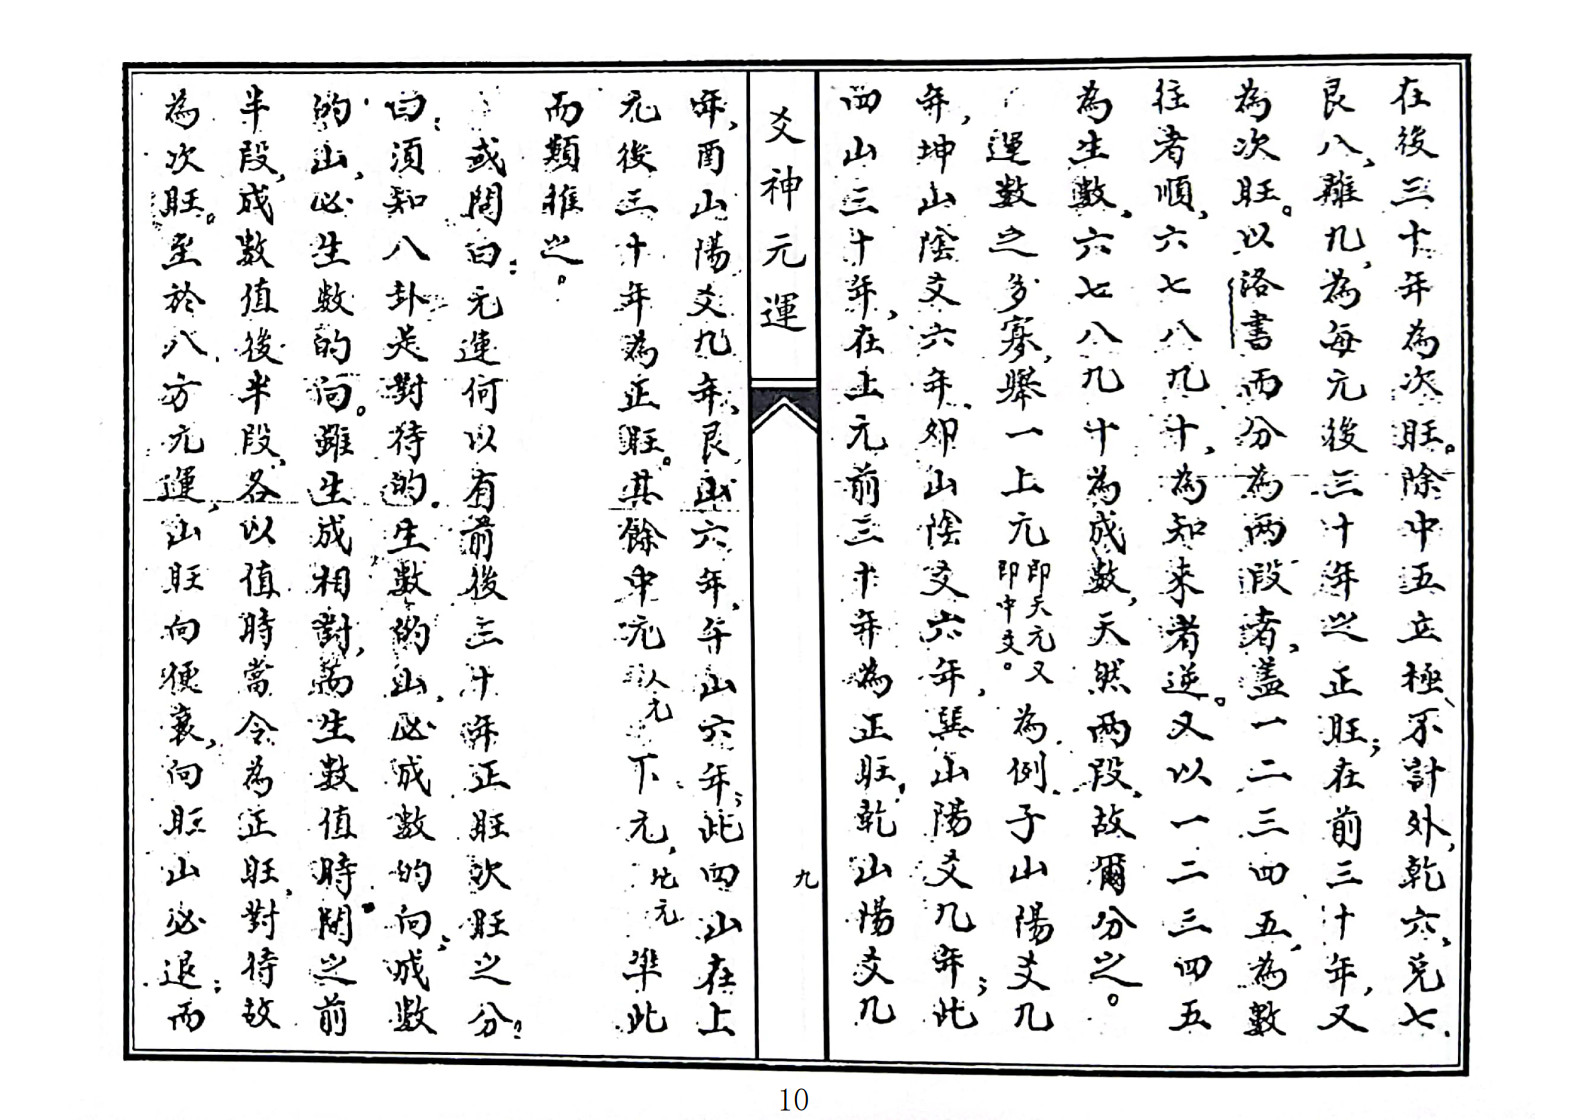 在後三十年為次旺。除中五立極、不計外，乾六，兌七、
艮八，離九，為每元後三十年之正旺；在前三十年，又
為次旺。以洛書而分為两段者，蓋一二三四五，為數
往者順，六七八九十，為知來者逆。又以一二三四五
為生數，六七八九十為成數，天然两段，故爾分之。
運數之多寡，舉一上元即天元又即中爻。為例，子山陽爻九
年，坤山陰爻六年，卯山陰爻六年，巽山陽爻九年；此
四山三十年，在上元前三十年為正旺，乾山陽爻九
爻神元運
九
年，酉山陽爻九年，艮山六年，午山六年；此四山在上
元後三十年為正旺。其餘中元人元下元，地元準此
而類推之。
或問曰：元運何以有前後三十年正旺次旺之分？
曰：須知八卦是對待的。生數的山，必成數的向；成數
的山，必生數的向。雖生成相對，為生數值時間之前
半段，成數值後半段，各以值時當令為正旺，對待故
為次旺。至於八方元運，山旺向便衰，向旺山必退；而
10